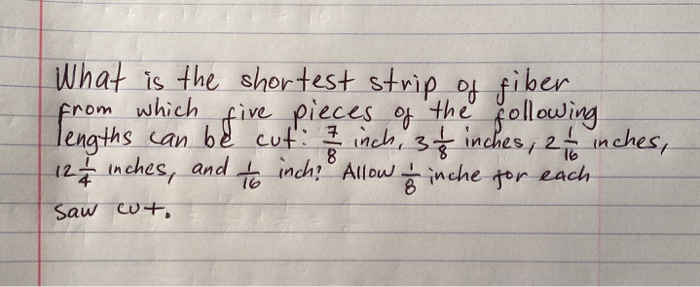 What is the shortest strip of fiber
from which five pieces of the following
lengths can be cut: 7/8 inch, 3 1/8 inches, 2 1/16 inches,
12 1/4 inches, and 1/16 inch? Allow 1/8 inche for each
saw cut.